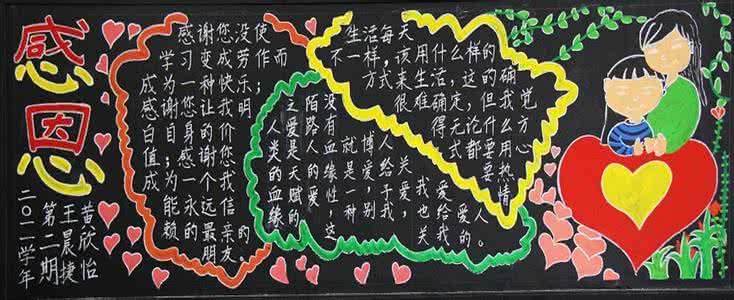 感恩
二〇一一学年
第二期
王晨捷
黄欣怡
感谢您没使
学习变成劳作而
成为一种快乐；
感谢您让我明
白自身的价
值；感谢您
成为一个我
能永远信
赖的最亲
的朋友。
人类的血缘
之爱是天赋的
陌路人的爱
没有血缘性，这
就是一种
博爱，别
人给予我
关爱，
我也关
爱给我
爱的
人。
生活每天
不一样，该用什么样的
方式来生活，这的确
很难确定，但我觉
得无论什么方
式都要用心
要热
情。